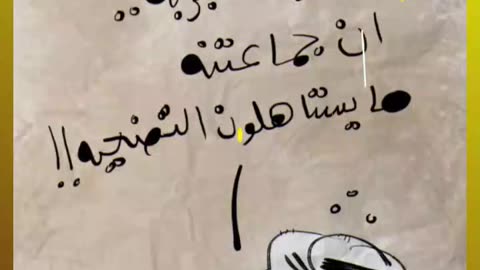 ان جماعتنه
ما يستاهلون التضحيه!!